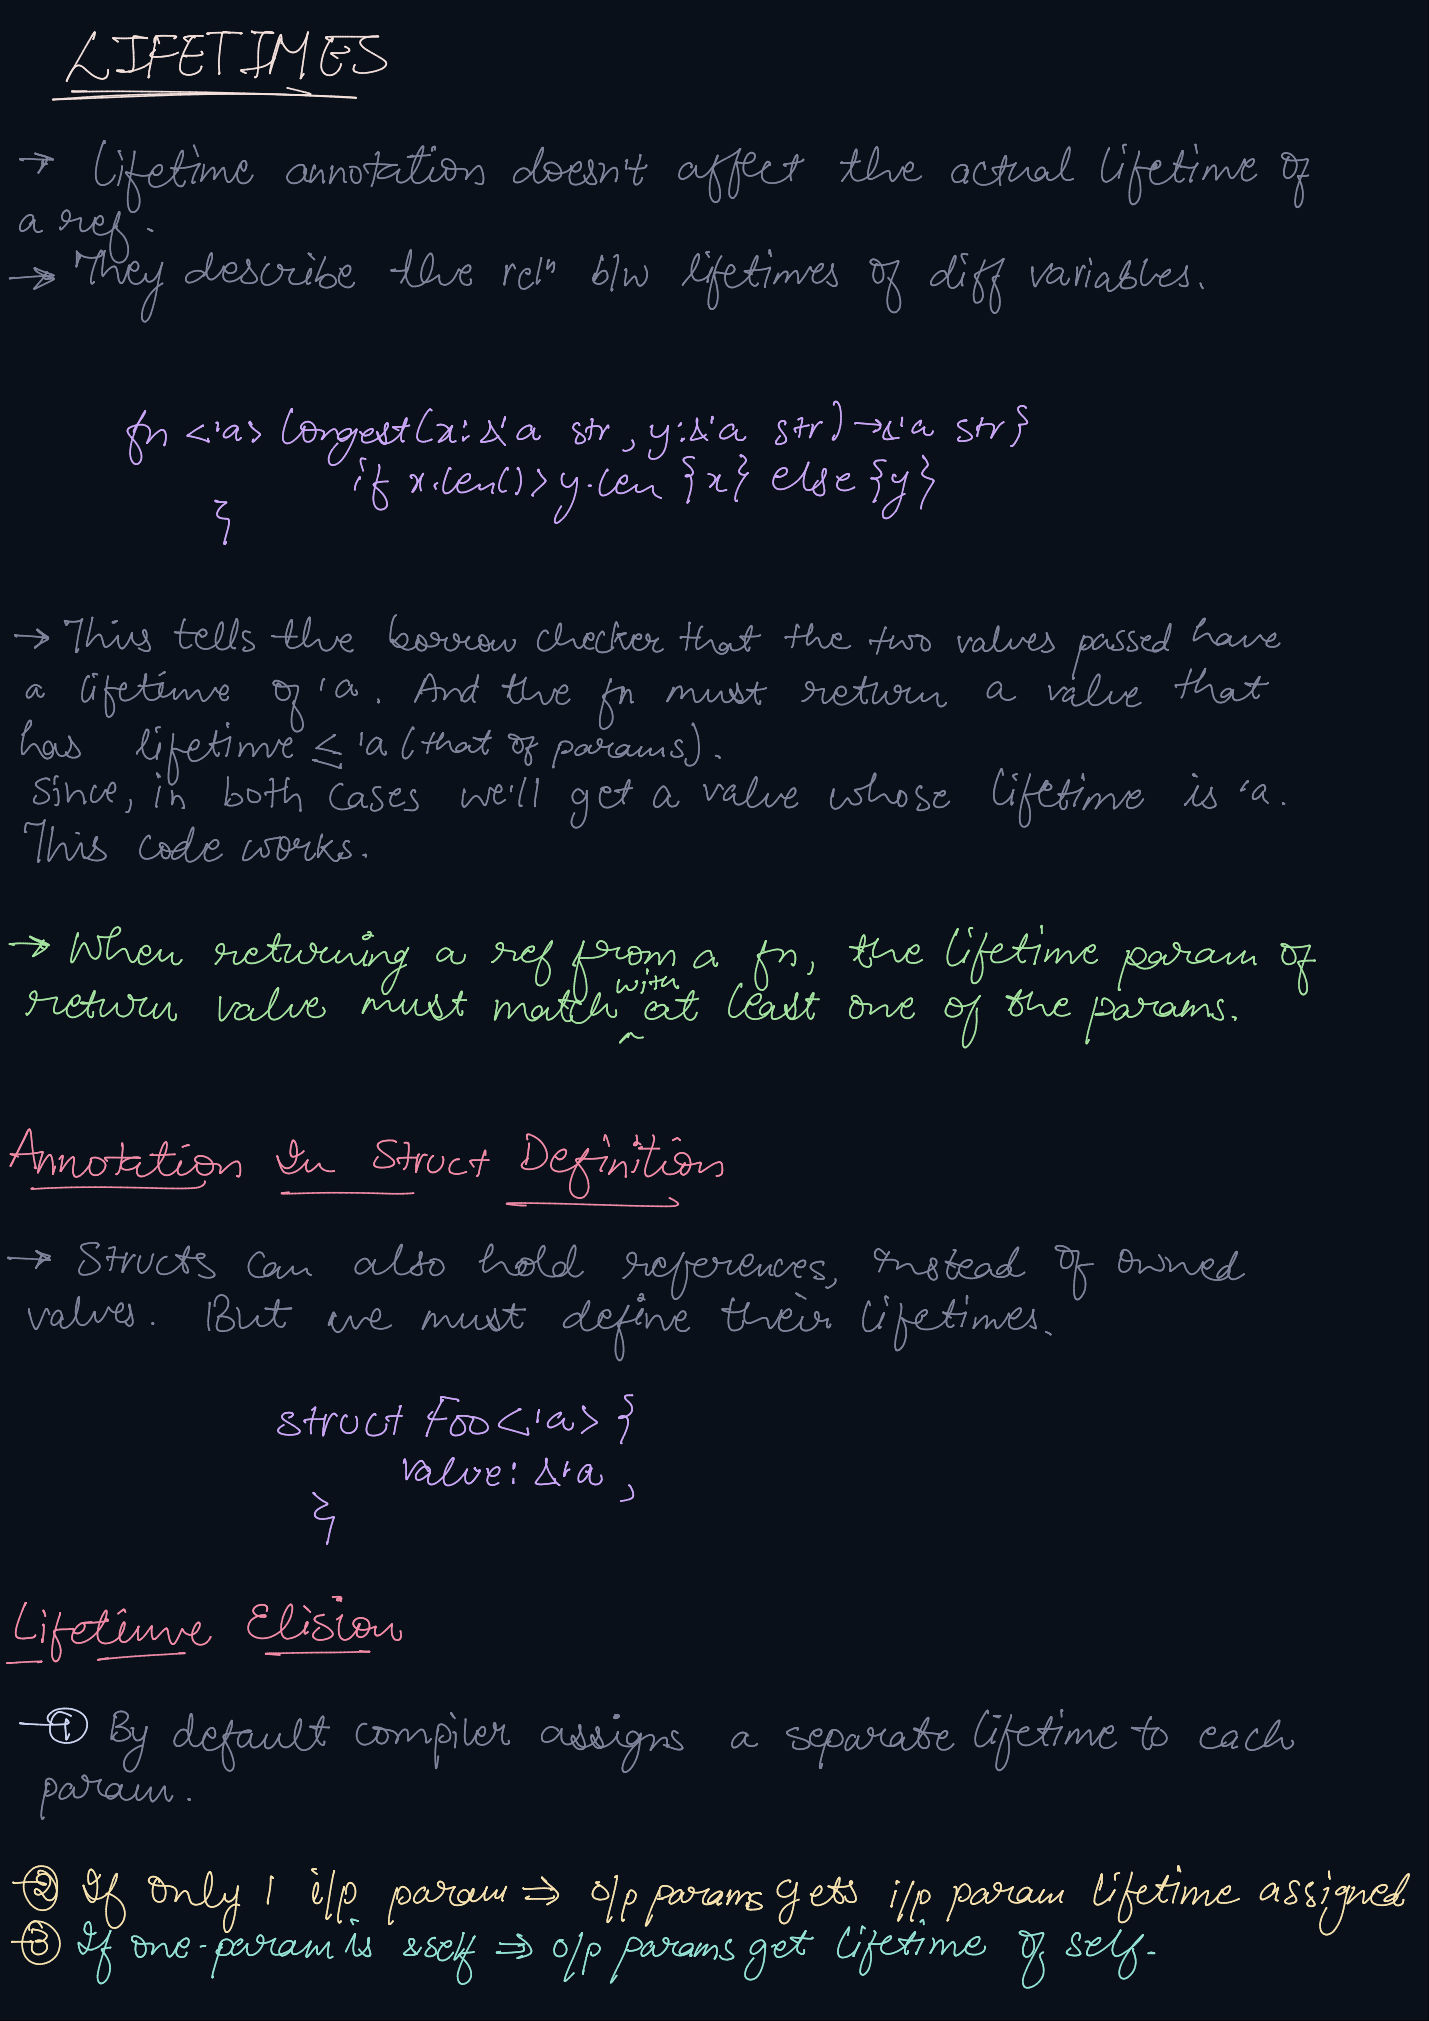 LIFETIMES
→ Lifetime annotation doesn't affect the actual lifetime of
a ref.
→ They describe the relⁿ b/w lifetimes of diff variables.
fn <'a> longest(x: &'a str, y: &'a str) → &'a str {
if x.len() > y.len {x} else {y}
}
→ This tells the borrow checker that the two values passed have
a lifetime of 'a. And the fn must return a value that
has lifetime ≤ 'a (that of params).
Since, in both cases we'll get a value whose lifetime is 'a.
This code works.
→ When returning a ref from a fn, the lifetime param of
return value must match with at least one of the params.
Annotation In Struct Definition
→ Structs can also hold references, instead of owned
values. But we must define their lifetimes.
struct Foo<'a> {
value: &'a ,
}
Lifetime Elision
→ ① By default compiler assigns a separate lifetime to each
param.
→ ② If only 1 i/p param ⇒ o/p params gets i/p param lifetime assigned
→ ③ If one-param is &self ⇒ o/p params get lifetime of self.